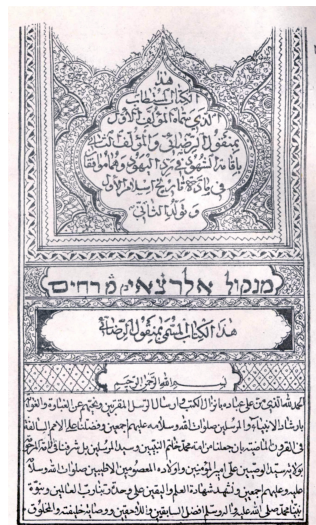 هذا
الكتاب المستطاب
الذي سماه المؤلف الاول
بمنقول الرضائي والمؤلف الثاني
باقامة الشهود في رد اليهود وهما موافقا
في مادة تاريخ اسلام الاول
و تولد الثاني
מנקול אלרצאי
هذا الكتاب المسمى بمنقول الرضائي
بسم الله الرحمن الرحيم
الحمد لله الذي من على عباده بانزال الكتب وارسال الرسل المقربين ونجيهم عن الضلالة والغواية
بارشاد الانبياء والمرسلين صلوات الله وسلامه عليهم اجمعين وفضلنا على الامم السالفة
في القرون الماضية بان جعلنا من امة محمد خاتم النبيين وسيد المرسلين بل شرفنا
بولاية سيد الوصيين علي امير المؤمنين واولاده المعصومين الاطيبين صلوات الله وسلامه
عليه وعليهم اجمعين ونشهد شهادة العلم واليقين على وحدة رب العالمين ونبوة
نبينا محمد صلى الله عليه واله وسلم افضل السابقين واللاحقين ووصاية خليفته